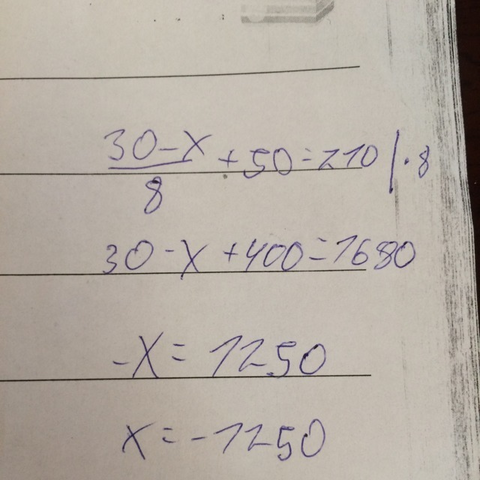 30-x/8 + 50 = 210 | · 8
30 - x + 400 = 1680
-x = 1250
x = -1250